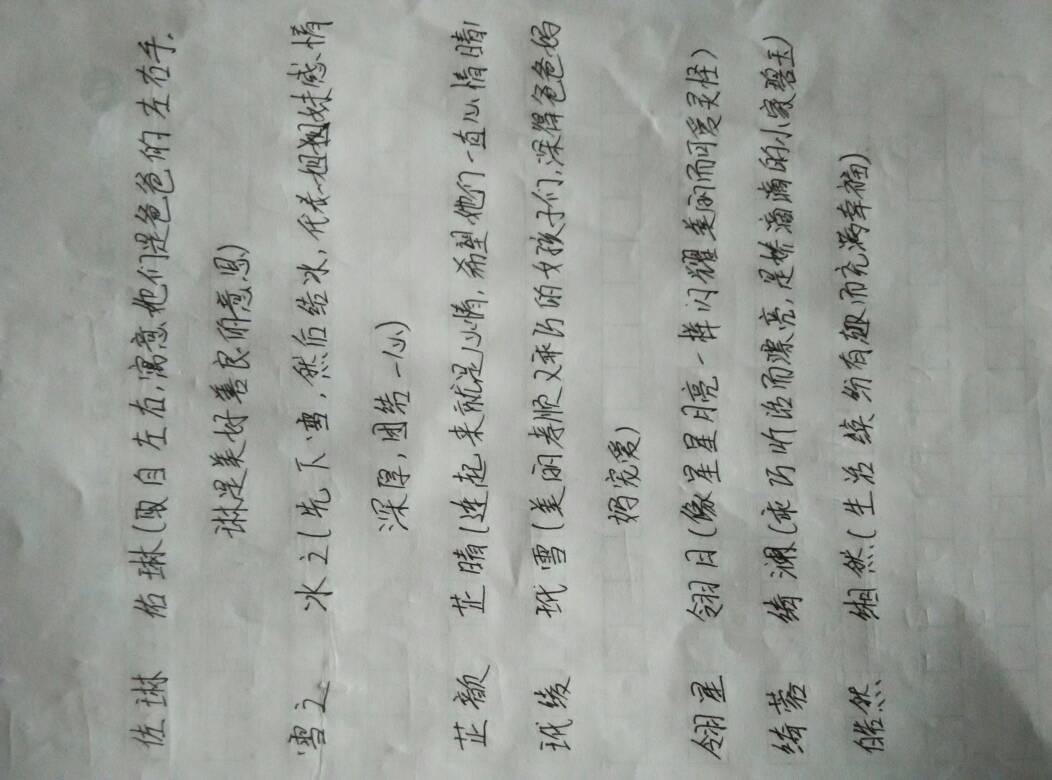 佐琳 佑琳(取自左右,寓意他们是爸爸的左右手.
琳是美好善良的意思)
雪之 冰之(先下雪,然后结冰,代表姐妹感情
深厚,团结一心)
芷歆 芷晴(连起来就是心情,希望他们一直心情晴)
玳绫 玳雪(美丽孝顺又乖巧的女孩子们,深得爸爸妈
妈宠爱)
翎星 翎月(像星星月亮一样闪耀美丽而可爱灵怪)
绮蒅 绮澜(乖巧听话而漂亮,是娇滴滴的小家碧玉)
皓然 缃然(生活缤纷有趣而充满幸福)